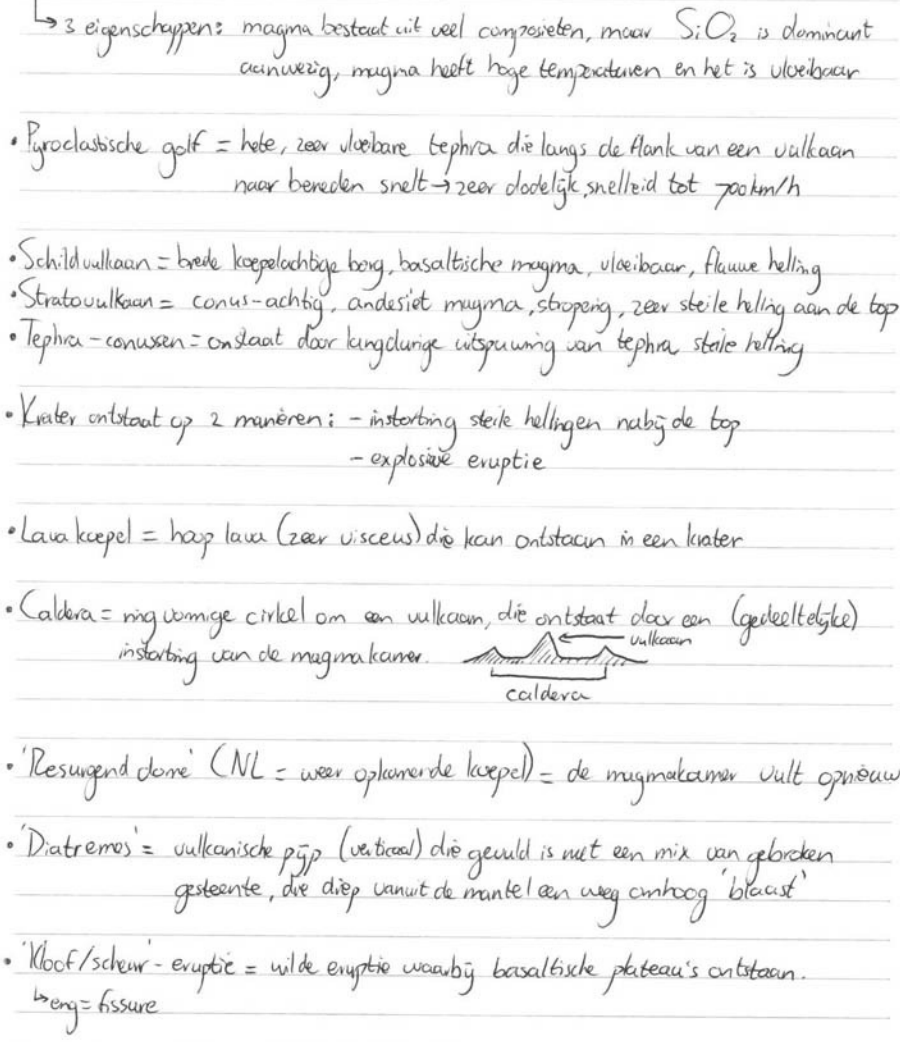 ↳ 3 eigenschappen: magma bestaat uit veel composieten, maar SiO₂ is dominant
aanwezig, magma heeft hoge temperaturen en het is vloeibaar
• Pyroclastische golf = hete, zeer vloeibare tephra die langs de flank van een vulkaan
naar beneden snelt → zeer dodelijk, snelleid tot 700km/h
• Schildvulkaan = brede koepelachtige berg, basaltische magma, vloeibaar, flauwe helling
• Stratovulkaan = conus-achtig, andesiet magma, stroperig, zeer steile helling aan de top
• Tephra-conussen = onstaat door langdurige uitspuwing van tephra, steile helling
• Krater ontstaat op 2 manieren: - instorting steile hellingen nabij de top
- explosieve eruptie
• Lava koepel = hoop lava (zeer visceus) die kan ontstaan in een krater
• Caldera = ringvormige cirkel om een vulkaan, die ontstaat door een (gedeeltelijke)
instorting van de magmakamer.
vulkaan
caldera
• 'Resurgend dome' (NL = weer opkomende koepel) = de magmakamer vult opnieuw
• 'Diatremes' = vulkanische pijp (verticaal) die gevuld is met een mix van gebroken
gesteente, die diep vanuit de mantel een weg omhoog 'blaast'
• 'Kloof/scheur'-eruptie = wilde eruptie waarbij basaltische plateau's ontstaan.
↳ eng = fissure